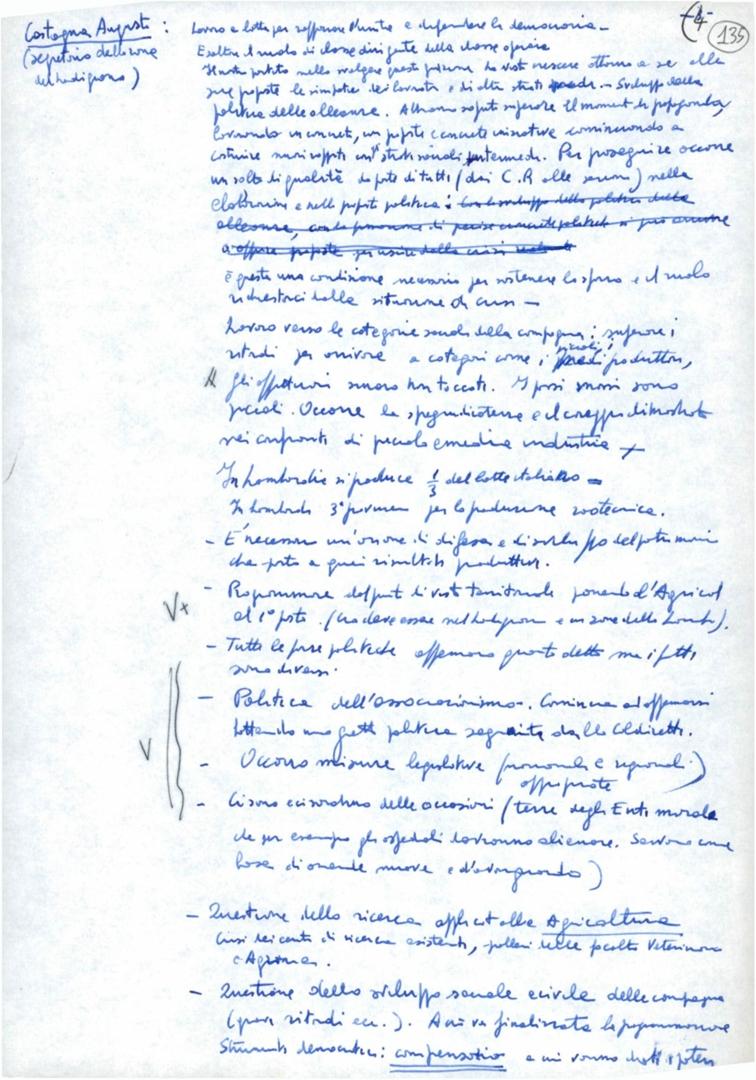 -4-
135
Castagna Augusto :
(segretario della zona
del Lodigiano)
Lavoro e lotta per rafforzare l'unità e difendere la democrazia -
Esaltare il ruolo di classe dirigente della classe operaia
Il nostro partito nello svolgere questa funzione ha visto crescere attorno a sé alle
sue proposte le simpatie dei lavoratori e di altri strati - Sviluppo della
politica delle alleanze. Abbiamo saputo superare il momento di propaganda,
lavorando in concreto, con proposte concrete iniziative cominciando a
costruire nuovi rapporti con strati sociali intermedi. Per proseguire occorre
un salto di qualità da parte di tutti (dai C.R alle sezioni) nella
elaborazione e nelle proposte politiche :
è questa una condizione necessaria per sostenere lo sforzo e il ruolo
richiestoci dalla situazione di crisi -
Lavoro verso le categorie sociali della campagna : superare i
ritardi per arrivare a categorie come i piccoli produttori,
gli affittuari ancora non toccati. I passi mossi sono
piccoli. Occorre la spregiudicatezza e il coraggio dimostrato
nei confronti di piccola e media industria
In Lombardia si produce 1/3 del latte italiano -
In Lombardia 3 province per la produzione zootecnica.
- E' necessaria un'azione di difesa e di sviluppo del patrimonio
che porta a quei risultati produttivi.
V+
- Programmare dal punto di vista territoriale ponendo l'Agricol
al 1° posto. (ciò deve essere nel Lodigiano e in zone della Lomb).
- Tutte le forze politiche affermano quanto detto ma i fatti
sono diversi.
V
- Politica dell'associazionismo. Comincia ad affermarsi
battendo una gretta politica seguita dalla Coldiretti.
- Occorrono misure legislative (nazionali e regionali)
appropriate
- Ci sono e ci saranno delle occasioni (terre degli Enti morali
che per esempio gli ospedali dovranno alienare. Servano come
base di aziende nuove e d'avanguardia)
- Questione della ricerca applicata alla Agricoltura
Crisi dei centri di ricerca esistenti, delle facoltà Veterinaria
e Agraria.
- Questione dello sviluppo sociale e civile delle campagne
(gravi ritardi ecc.). A ciò va finalizzata la programmazione
Strumenti democratici: comprensorio a cui vanno dati i poteri